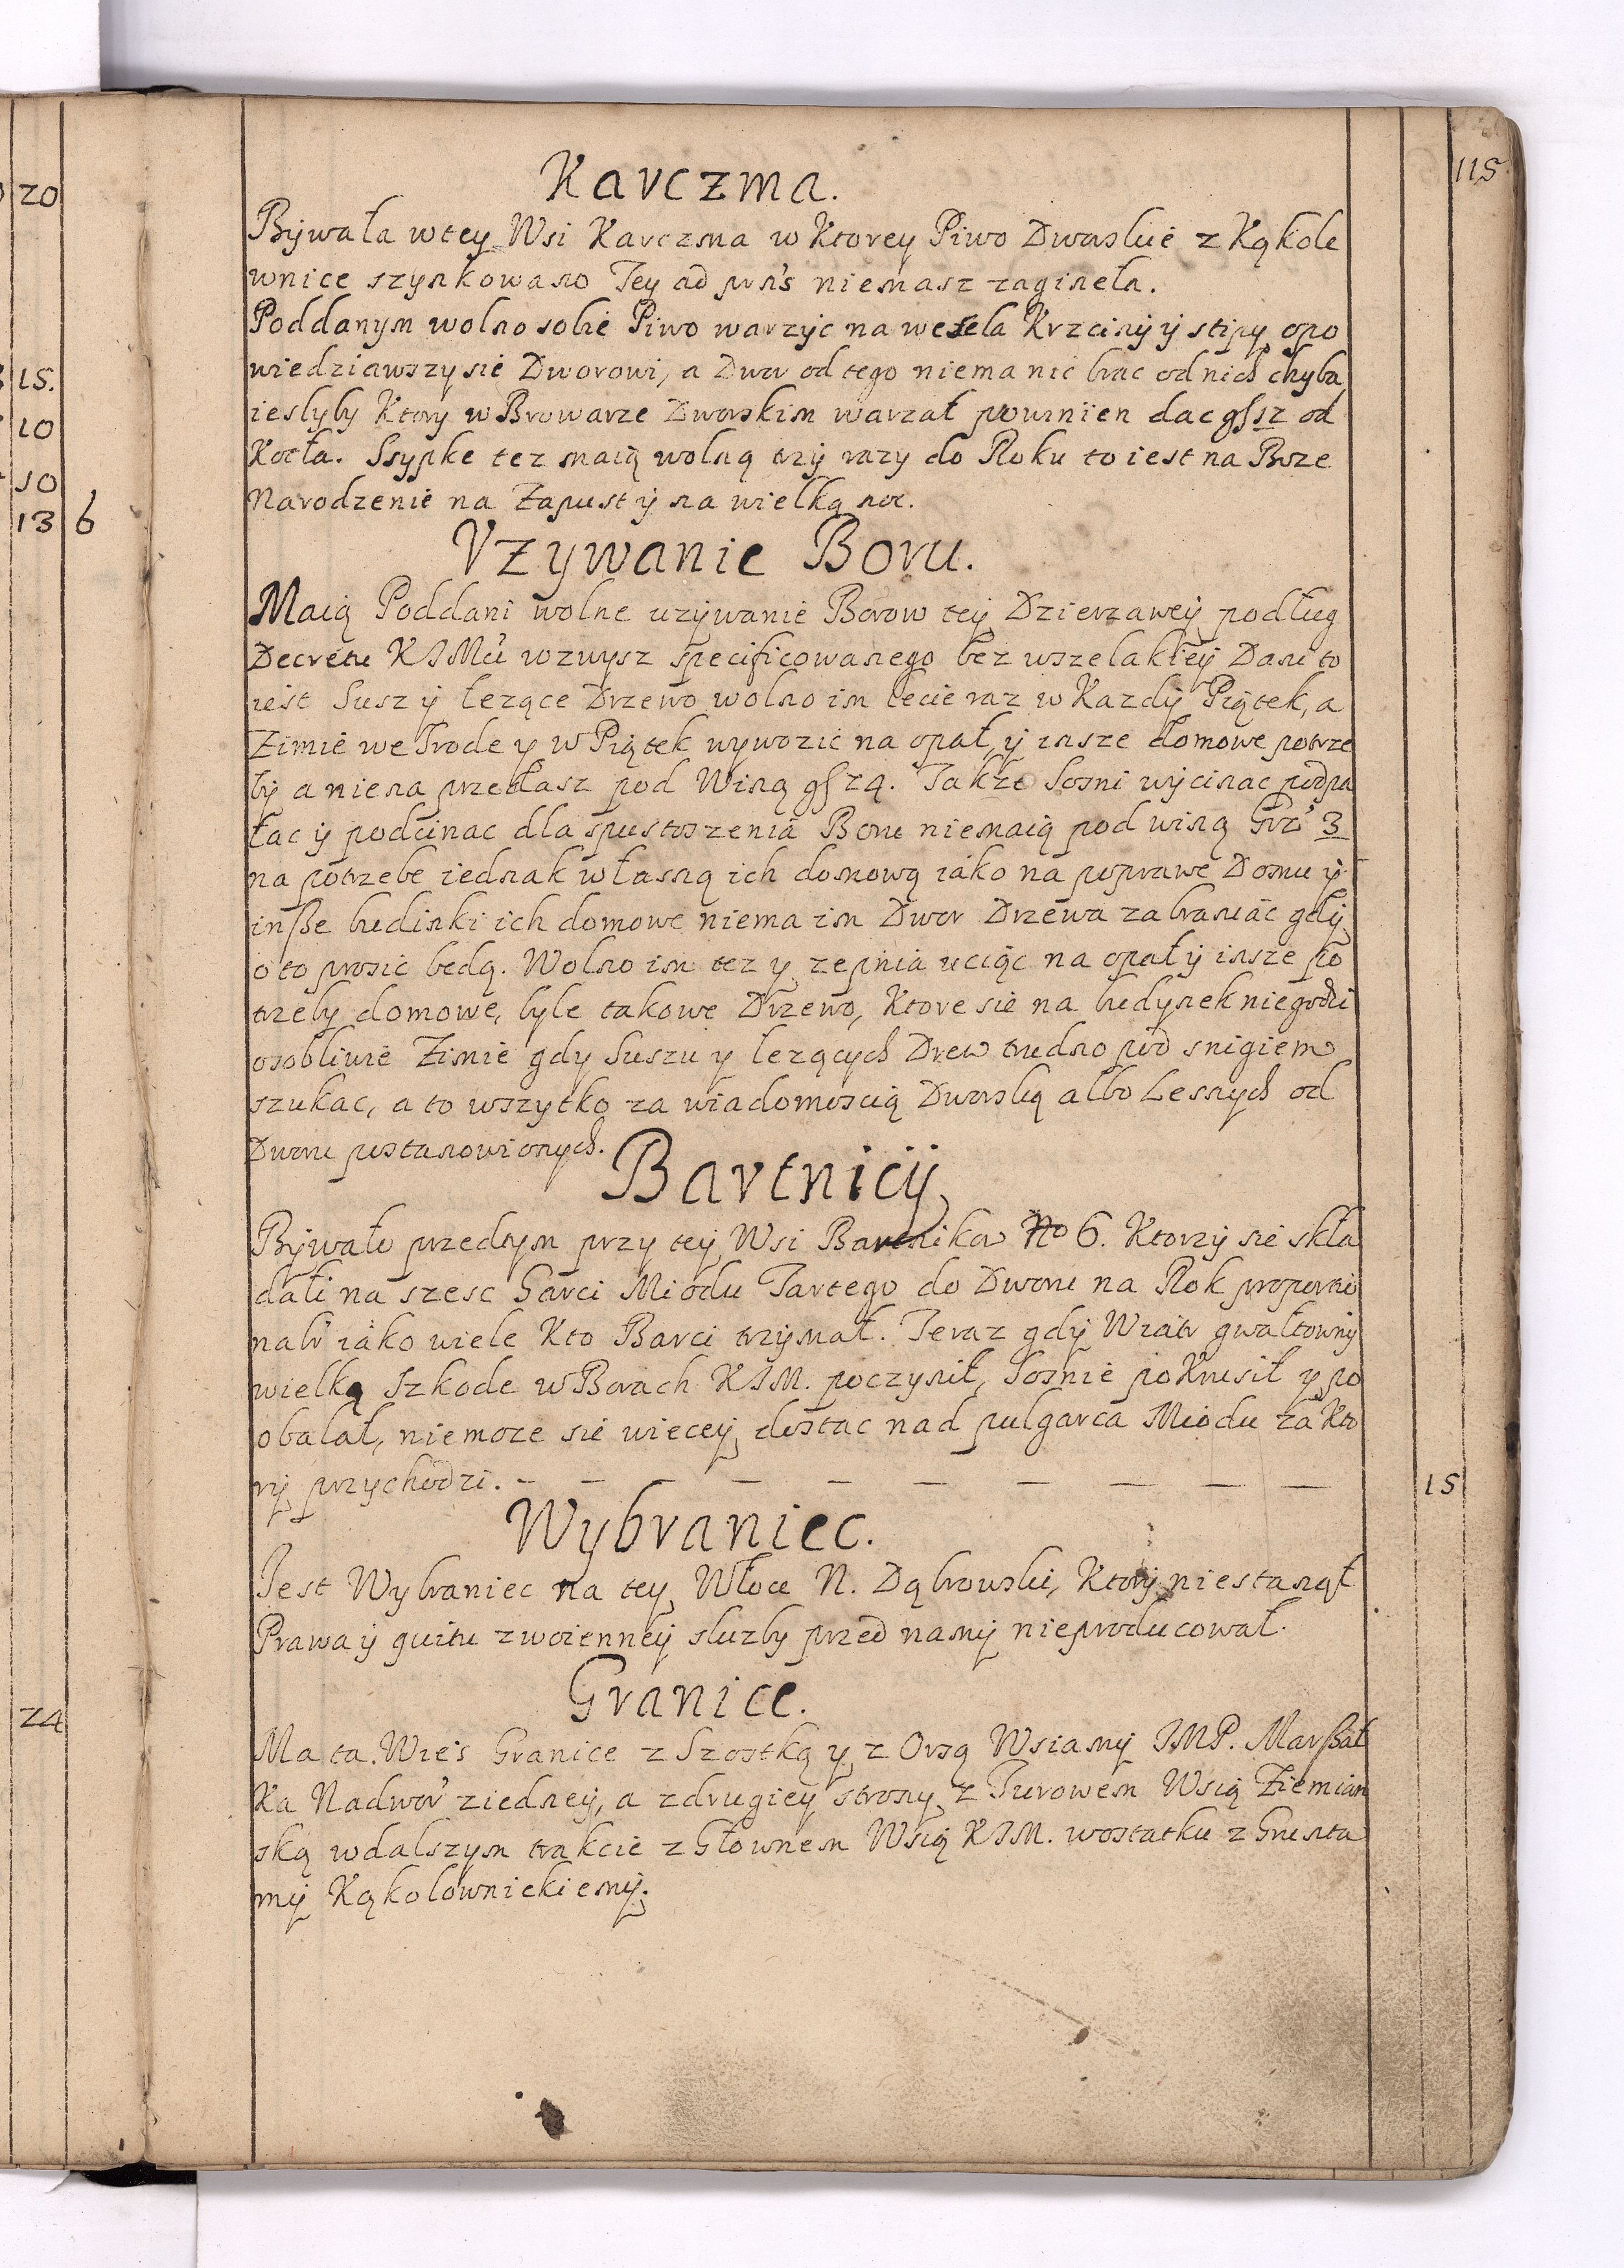 115
Karczma.
Bywała w tey Wsi Karczma w Ktorey Piwo Dworskie z Kąkole
wnice szynkowano Tey ad prns niemasz zagineła.
Poddanym wolno sobie Piwo warzyc na wesela Krzciny y stipy opo
wiedziawszy sie Dworowi, a Dwor od tego niema nic brac od nich chyba
ieslyby Ktory w Browarze Dworskim warzał powinien dac gſ 12 od
Kotła. Ssypke tez maią wolną trzy razy do Roku to iest na Boze
Narodzenie na Zapusty y na wielką noc.
Vzywanie Boru.
Maią Poddani wolne uzywanie Borow tey Dzierzawey podług
Decretu KIMci wzwysz specificowanego bez wszelakiey Dani to
iest Susz y lezące Drzewo wolno im lecie raz w Kazdy Piątek, a
Zimie we Srode y w Piątek wywozic na opał, y insze domowe potrze
by a nie na przedasz pod Winą gſ 24. Takze Sosni wycinac podpa
łac y podcinac dla spustoszenia Boru niemaią pod winą Grz 3
na potrzebe iednak własną ich domową iako na poprawe Domu y
inße budinki ich domowe niema im Dwor Drzewa zabraniac gdy
o to prosic będą. Wolno im tez y z epnia uciąc na opał y insze po
trzeby domowe, byle takowe Drzewo, Ktore sie na budynek niegodzi
osobliwie Zimie gdy Suszu y lezących Drew trudno pod snigiem
szukac, a to wszytko za wiadomoscią Dworską albo Lesnych od
Dworu postanowionych.
Bartnicy
Bywało przedtym przy tey Wsi Bartnikow No 6. Ktorzy sie skła
dali na szesc Garci Miodu Tartego do Dworu na Rok proportio
nalr iako wiele Kto Barci trzymał. Teraz gdy Wiatr gwałtowny
wielką Szkode w Borach KIM. poczynił, Sosnie pokrusił y po
obalał, niemoze sie wiecey dostac nad pulgarca Miodu za Kto
ry przychodzi. — — — — — — — — — 15
Wybraniec.
Jest Wybraniec na tey Włoce N. Dąbrowski, Ktory niestanął
Prawa y quitu z woienney sluzby przed namy nieproducował.
Granice.
Ma ta Wies Granice z Szostką y z Orzą Wsiamy IMP. Marßał
ka Nadwor z iedney, a z drugiey strony z Turowem Wsią Ziemian
ską w dalszym trakcie z Głownem Wsią KIM. w ostatku z Grunta
my Kąkolownickiemy.
20
15.
10
10
13 6
24